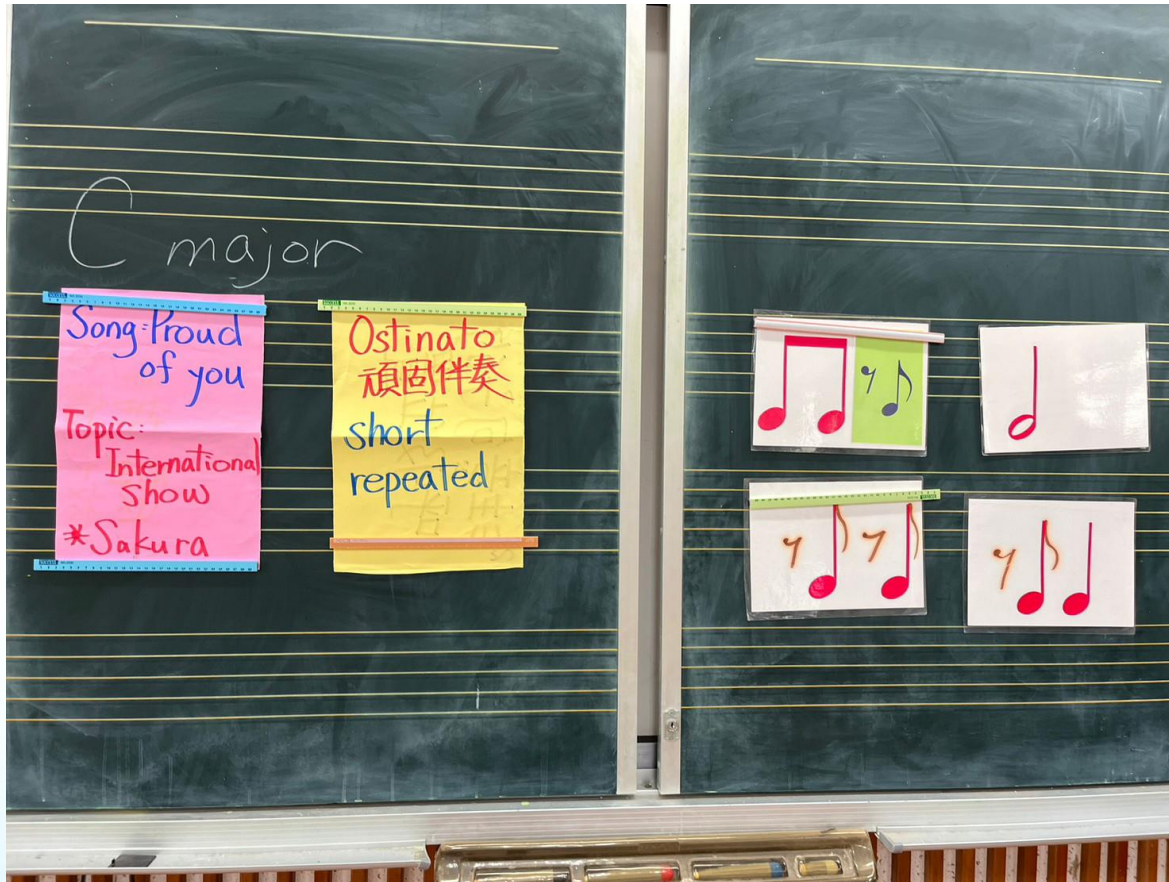 C major
Song: Proud
of you
Topic:
International
show
*Sakura
Ostinato
頑固伴奏
short
repeated